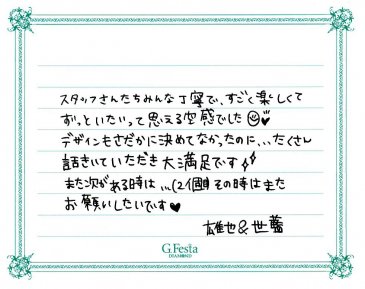 スタッフさんたちみんな丁寧で、すごく楽しくて
ずっといたいって思える空感でした
デザインもさだかに決めてなかったのに...たくさん
話きいていただき大満足です
また次がある時は...(2個目)その時はまた
お願いしたいです♥
雄也&世蘭
G.Festa
DIAMOND